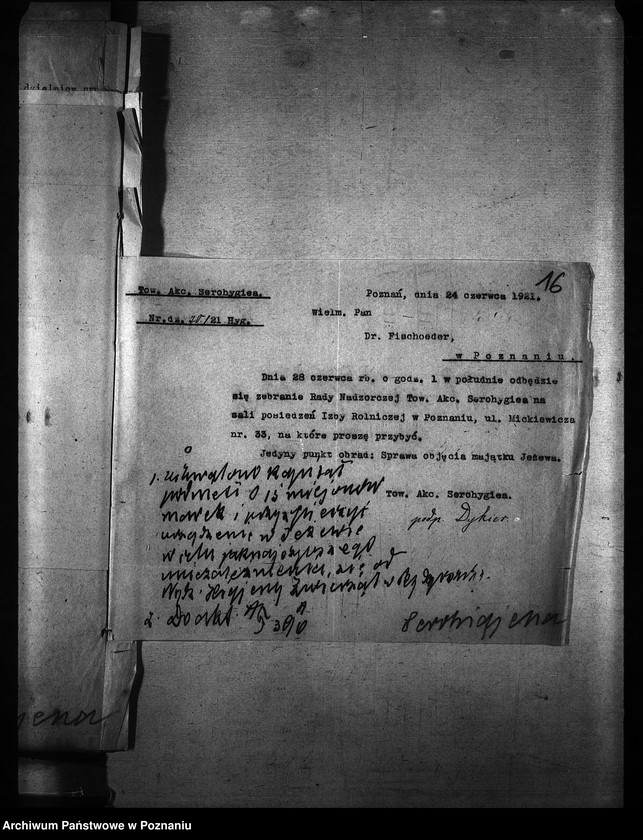 16
Tow. Akc. Serohygiea.
Poznań, dnia 24 czerwca 1921.
Nr.dz. /21 Hyg.
Wielm. Pan
Dr. Fischoeder,
w Poznaniu.
Dnia 28 czerwca rb. o godz. 1 w południe odbędzie
się zebranie Rady Nadzorczej Tow. Akc. Serohygiea na
sali posiedzeń Izby Rolniczej w Poznaniu, ul. Mickiewicza
nr. 33, na które proszę przybyć.
Jedyny punkt obrad: Sprawa objęcia majątku Jeżewa.
Tow. Akc. Serohygiea.
podp. Dykier.
1. uchwalono kapitał
podnieść o 15 miljonów
marek i
urządzenie w Jeżewie
w celu jaknajszybszego
uniezależnienia się od
Wydz. Hygjeny Zwierząt w Bydgoszczy.
2. Do akt.
Serohigjena
jena
Archiwum Państwowe w Poznaniu